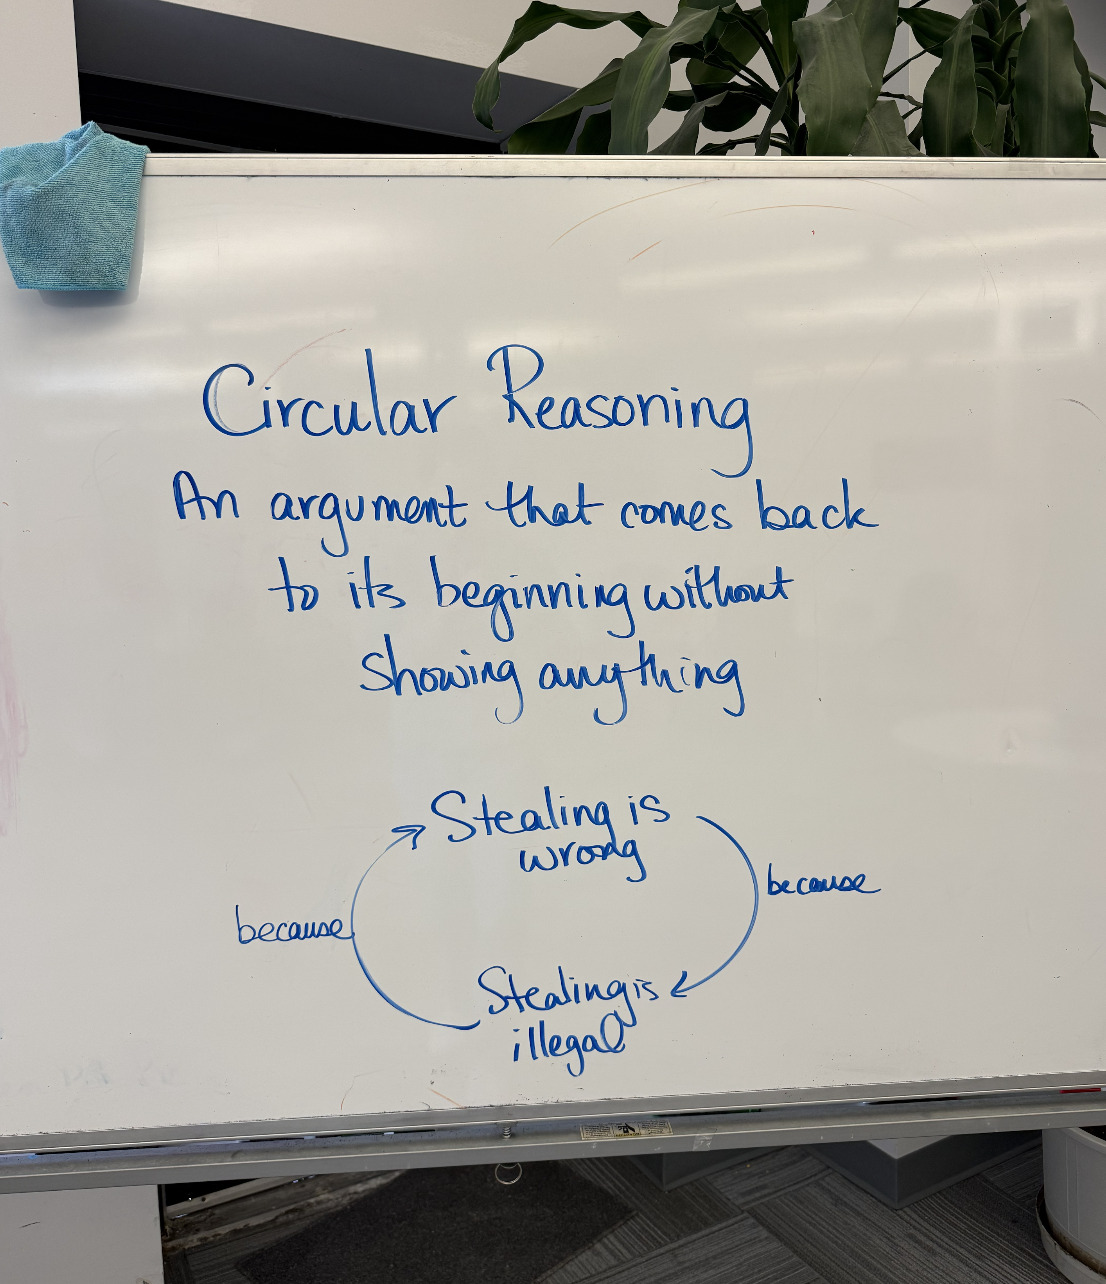 Circular Reasoning
An argument that comes back
to its beginning without
showing anything
Stealing is
wrong
because
because
Stealing is
illegal